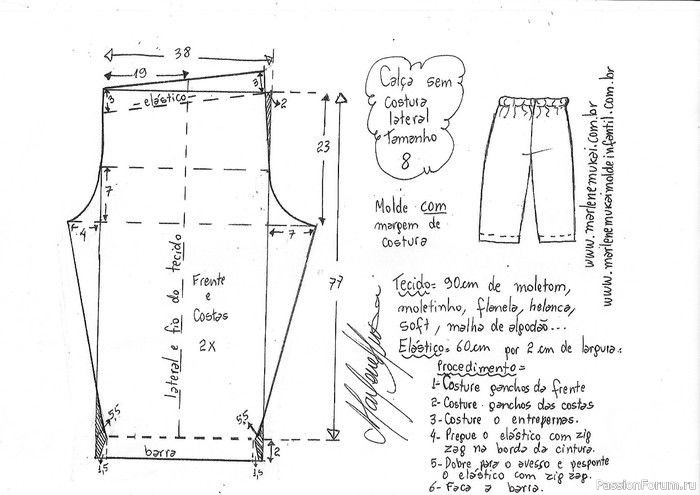 38
19
3
3
elástico
2
23
7
4
7
77
lateral e fio do tecido
Frente
e
Costas
2X
5,5
5,5
barra
1,5
1,5
2
Calça sem
costura
lateral
Tamanho
8
Molde com
margem de
costura
www.marlenemukai.com.br
www.marlenemukaimoldeinfantil.com.br
Tecido= 90cm de moletom,
moletinho, flanela, helanca,
soft, malha de algodão...
Elástico= 60cm por 2 cm de largura.
Procedimento=
1- Costure ganchos da frente
2- Costure ganchos das costas
3- Costure o entrepernas.
4- Pregue o elástico com zig
zag na borda da cintura.
5- Dobre para o avesso e pesponte
o elástico com zig zag.
6- Faça a barra.
Marlene Mukai
PassionForum.ru